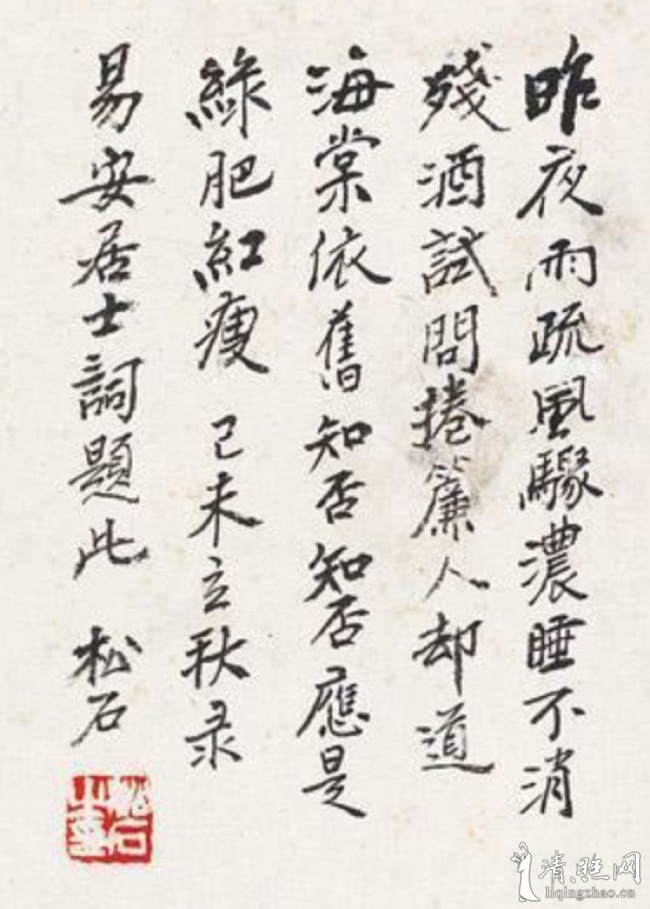 昨夜雨疏風驟濃睡不消
殘酒試問捲簾人却道
海棠依舊知否知否應是
綠肥紅瘦 己未立秋录
易安居士詞題此 松石
清旺网
liqingzhao.cn